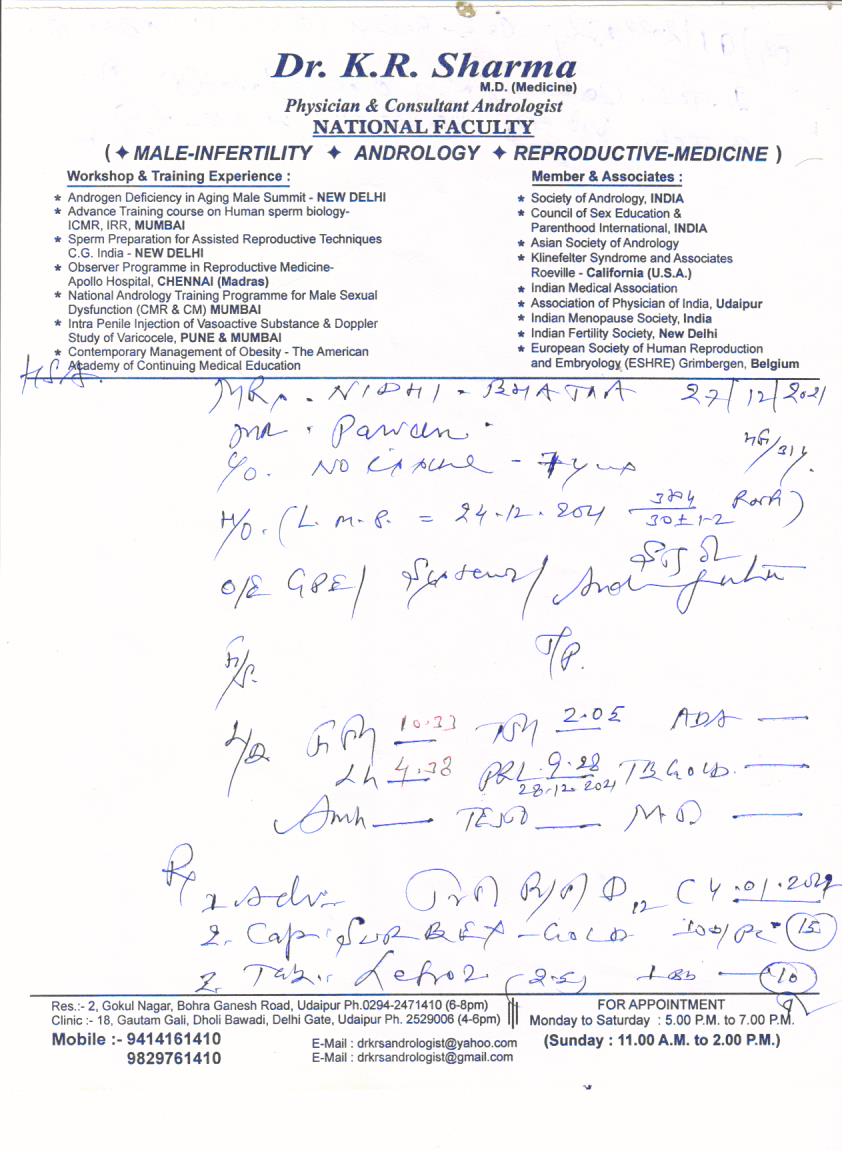 Dr. K.R. Sharma
M.D. (Medicine)
Physician & Consultant Andrologist
NATIONAL FACULTY
( ✦ MALE-INFERTILITY ✦ ANDROLOGY ✦ REPRODUCTIVE-MEDICINE )
Workshop & Training Experience :
* Androgen Deficiency in Aging Male Summit - NEW DELHI
* Advance Training course on Human sperm biology-
ICMR, IRR, MUMBAI
* Sperm Preparation for Assisted Reproductive Techniques
C.G. India - NEW DELHI
* Observer Programme in Reproductive Medicine-
Apollo Hospital, CHENNAI (Madras)
* National Andrology Training Programme for Male Sexual
Dysfunction (CMR & CM) MUMBAI
* Intra Penile Injection of Vasoactive Substance & Doppler
Study of Varicocele, PUNE & MUMBAI
* Contemporary Management of Obesity - The American
Academy of Continuing Medical Education
Member & Associates :
* Society of Andrology, INDIA
* Council of Sex Education &
Parenthood International, INDIA
* Asian Society of Andrology
* Klinefelter Syndrome and Associates
Roeville - California (U.S.A.)
* Indian Medical Association
* Association of Physician of India, Udaipur
* Indian Menopause Society, India
* Indian Fertility Society, New Delhi
* European Society of Human Reproduction
and Embryology (ESHRE) Grimbergen, Belgium
NIDHI 27/12/2021
Pawan
C/O. NO - 7
H/O. (L.M.P. = 24.12.2021 30±1-2
O/E GPE/
T/P.
10.33 TSH 2.05
Lh 4.38 PRL 9.28 TB GOLD
28.12.2021
Amh
Rx
1 Adv.
2. Cap. SURBEX - GOLD 15
Tab. Letroz (2.5) 10
Res.:- 2, Gokul Nagar, Bohra Ganesh Road, Udaipur Ph.0294-2471410 (6-8pm)
Clinic :- 18, Gautam Gali, Dholi Bawadi, Delhi Gate, Udaipur Ph. 2529006 (4-6pm)
Mobile :- 9414161410
9829761410
E-Mail : drkrsandrologist@yahoo.com
E-Mail : drkrsandrologist@gmail.com
FOR APPOINTMENT
Monday to Saturday : 5.00 P.M. to 7.00 P.M.
(Sunday : 11.00 A.M. to 2.00 P.M.)